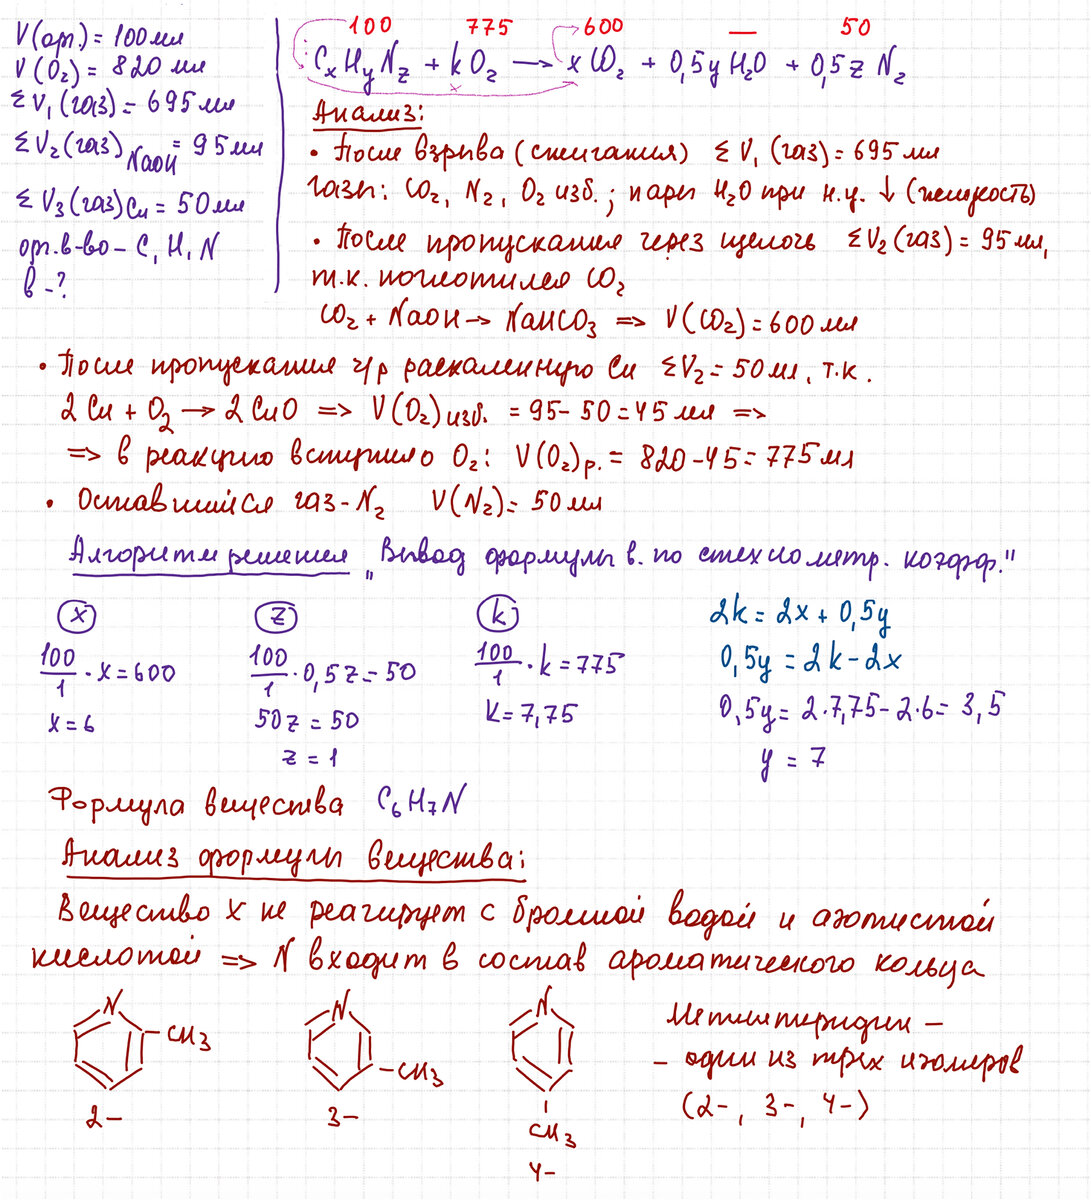 V(орг.) = 100 мл
V(O₂) = 820 мл
ΣV₁(газ) = 695 мл
ΣV₂(газ)NaOH = 95 мл
ΣV₃(газ)Cu = 50 мл
орг.в-во - C, H, N
В - ?
100 775 600 — 50
CₓHᵧN_z + kO₂ → xCO₂ + 0,5y H₂O + 0,5z N₂
x
Анализ:
• После взрыва (сжигания) ΣV₁(газ) = 695 мл
газы: CO₂, N₂, O₂ изб.; пары H₂O при н.у. ↓ (жидкость)
• После пропускания через щелочь ΣV₂(газ) = 95 мл,
т.к. поглотился CO₂
CO₂ + NaOH → NaHCO₃ => V(CO₂) = 600 мл
• После пропускания ч/р раскаленную Cu ΣV₂ = 50 мл, т.к.
2Cu + O₂ → 2CuO => V(O₂)изб. = 95 - 50 = 45 мл =>
=> в реакцию вступило O₂: V(O₂)р. = 820 - 45 = 775 мл
• Оставшийся газ - N₂ V(N₂) = 50 мл
Алгоритм решения „Вывод формулы в. по стехиометр. коэфф."
x z k
100/1 · x = 600
x = 6
100/1 · 0,5z = 50
50z = 50
z = 1
100/1 · k = 775
k = 7,75
2k = 2x + 0,5y
0,5y = 2k - 2x
0,5y = 2·7,75 - 2·6 = 3,5
y = 7
Формула вещества C₆H₇N
Анализ формулы вещества:
Вещество X не реагирует с бромной водой и азотистой
кислотой => N входит в состав ароматического кольца
N
CH₃
2-
N
CH₃
3-
N
CH₃
4-
Метилпиридин -
- один из трех изомеров
(2-, 3-, 4-)